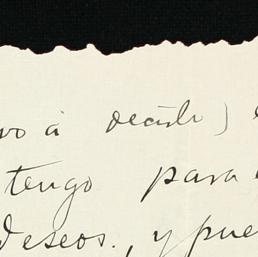 vo a decirle)
tengo para
deseos., y pue